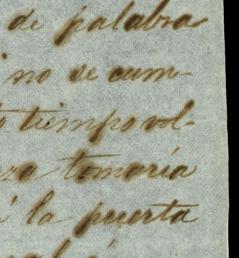 de palabra
no se cum-
tiempo vol-
tomaría
la puerta